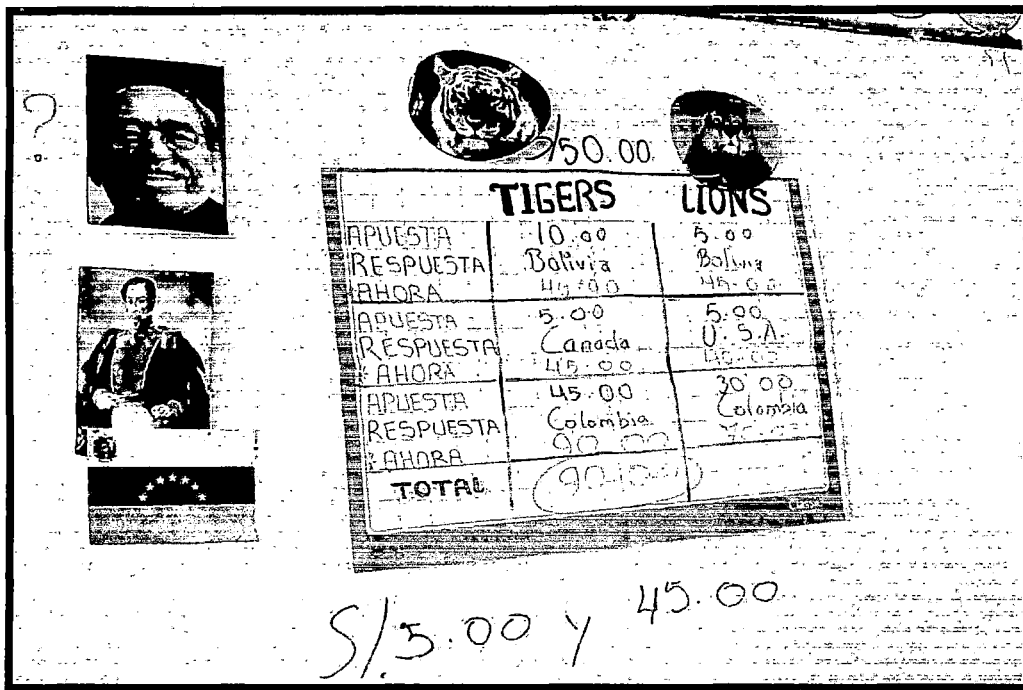 ?
S/50.00
TIGERS LIONS
APUESTA 10.00 5.00
RESPUESTA Bolivia Bolivia
AHORA 45.00 45.00
APUESTA 5.00 5.00
RESPUESTA Canada U.S.A.
AHORA 45.00
APUESTA 45.00 30.00
RESPUESTA Colombia Colombia
AHORA 90.00
TOTAL 90.00
S/.5.00 y 45.00